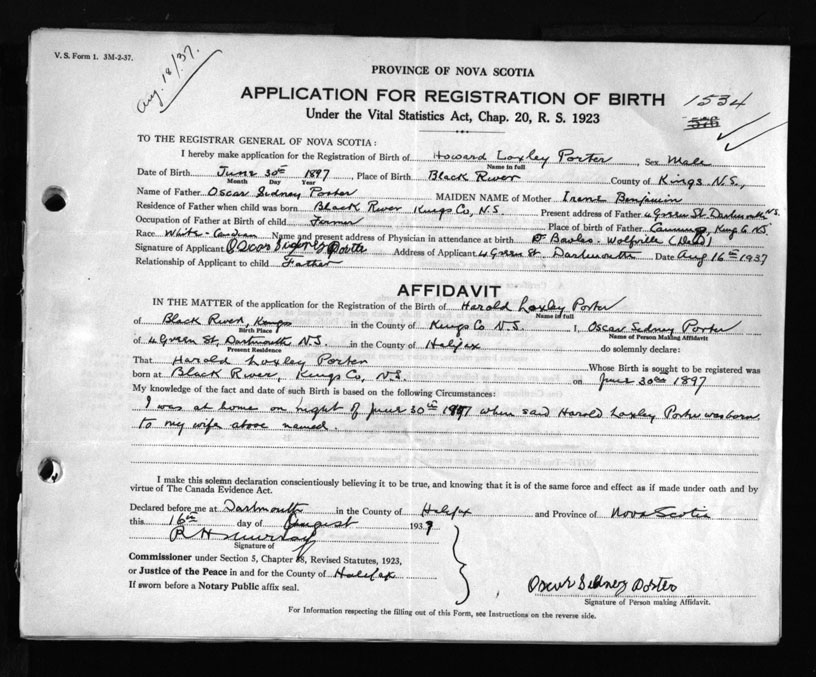 V. S. Form 1. 3M-2-37.
Aug. 18/37.
PROVINCE OF NOVA SCOTIA
APPLICATION FOR REGISTRATION OF BIRTH 1534
Under the Vital Statistics Act, Chap. 20, R. S. 1923
TO THE REGISTRAR GENERAL OF NOVA SCOTIA:
I hereby make application for the Registration of Birth of Howard Loxley Porter, Sex Male
Name in full
Date of Birth June 30th 1897, Place of Birth Black River County of Kings N.S.,
Month Day Year
Name of Father Oscar Sidney Porter MAIDEN NAME of Mother Irene Benjamin
Residence of Father when child was born Black River Kings Co, N.S. Present address of Father 4 Green St. Dartmouth N.S.
Occupation of Father at Birth of child Farmer Place of birth of Father Canning, Kings Co. N.S.
Race White-Canadian Name and present address of Physician in attendance at birth Dr Bowles - Wolfville (Dead)
Signature of Applicant Oscar Sidney Porter Address of Applicant 4 Green St. Dartmouth Date Aug 16th 1937
Relationship of Applicant to child Father
AFFIDAVIT
IN THE MATTER of the application for the Registration of the Birth of Harold Loxley Porter
Name in full
of Black River, Kings in the County of Kings Co N.S. I, Oscar Sidney Porter
Birth Place Name of Person Making Affidavit
of 4 Green St, Dartmouth N.S. in the County of Halifax do solemnly declare:
Present Residence
That Harold Loxley Porter Whose Birth is sought to be registered was
born at Black River, Kings Co, N.S. on June 30th 1897
My knowledge of the fact and date of such Birth is based on the following Circumstances:
I was at home on night of June 30th 1897 when said Harold Loxley Porter was born
to my wife above named.
I make this solemn declaration conscientiously believing it to be true, and knowing that it is of the same force and effect as if made under oath and by
virtue of The Canada Evidence Act.
Declared before me at Dartmouth in the County of Halifax and Province of Nova Scotia
this 16th day of August 1937
R H Murray
Signature of
Commissioner under Section 5, Chapter 38, Revised Statutes, 1923,
or Justice of the Peace in and for the County of Halifax
If sworn before a Notary Public affix seal.
Oscar Sidney Porter
Signature of Person making Affidavit.
For Information respecting the filling out of this Form, see Instructions on the reverse side.